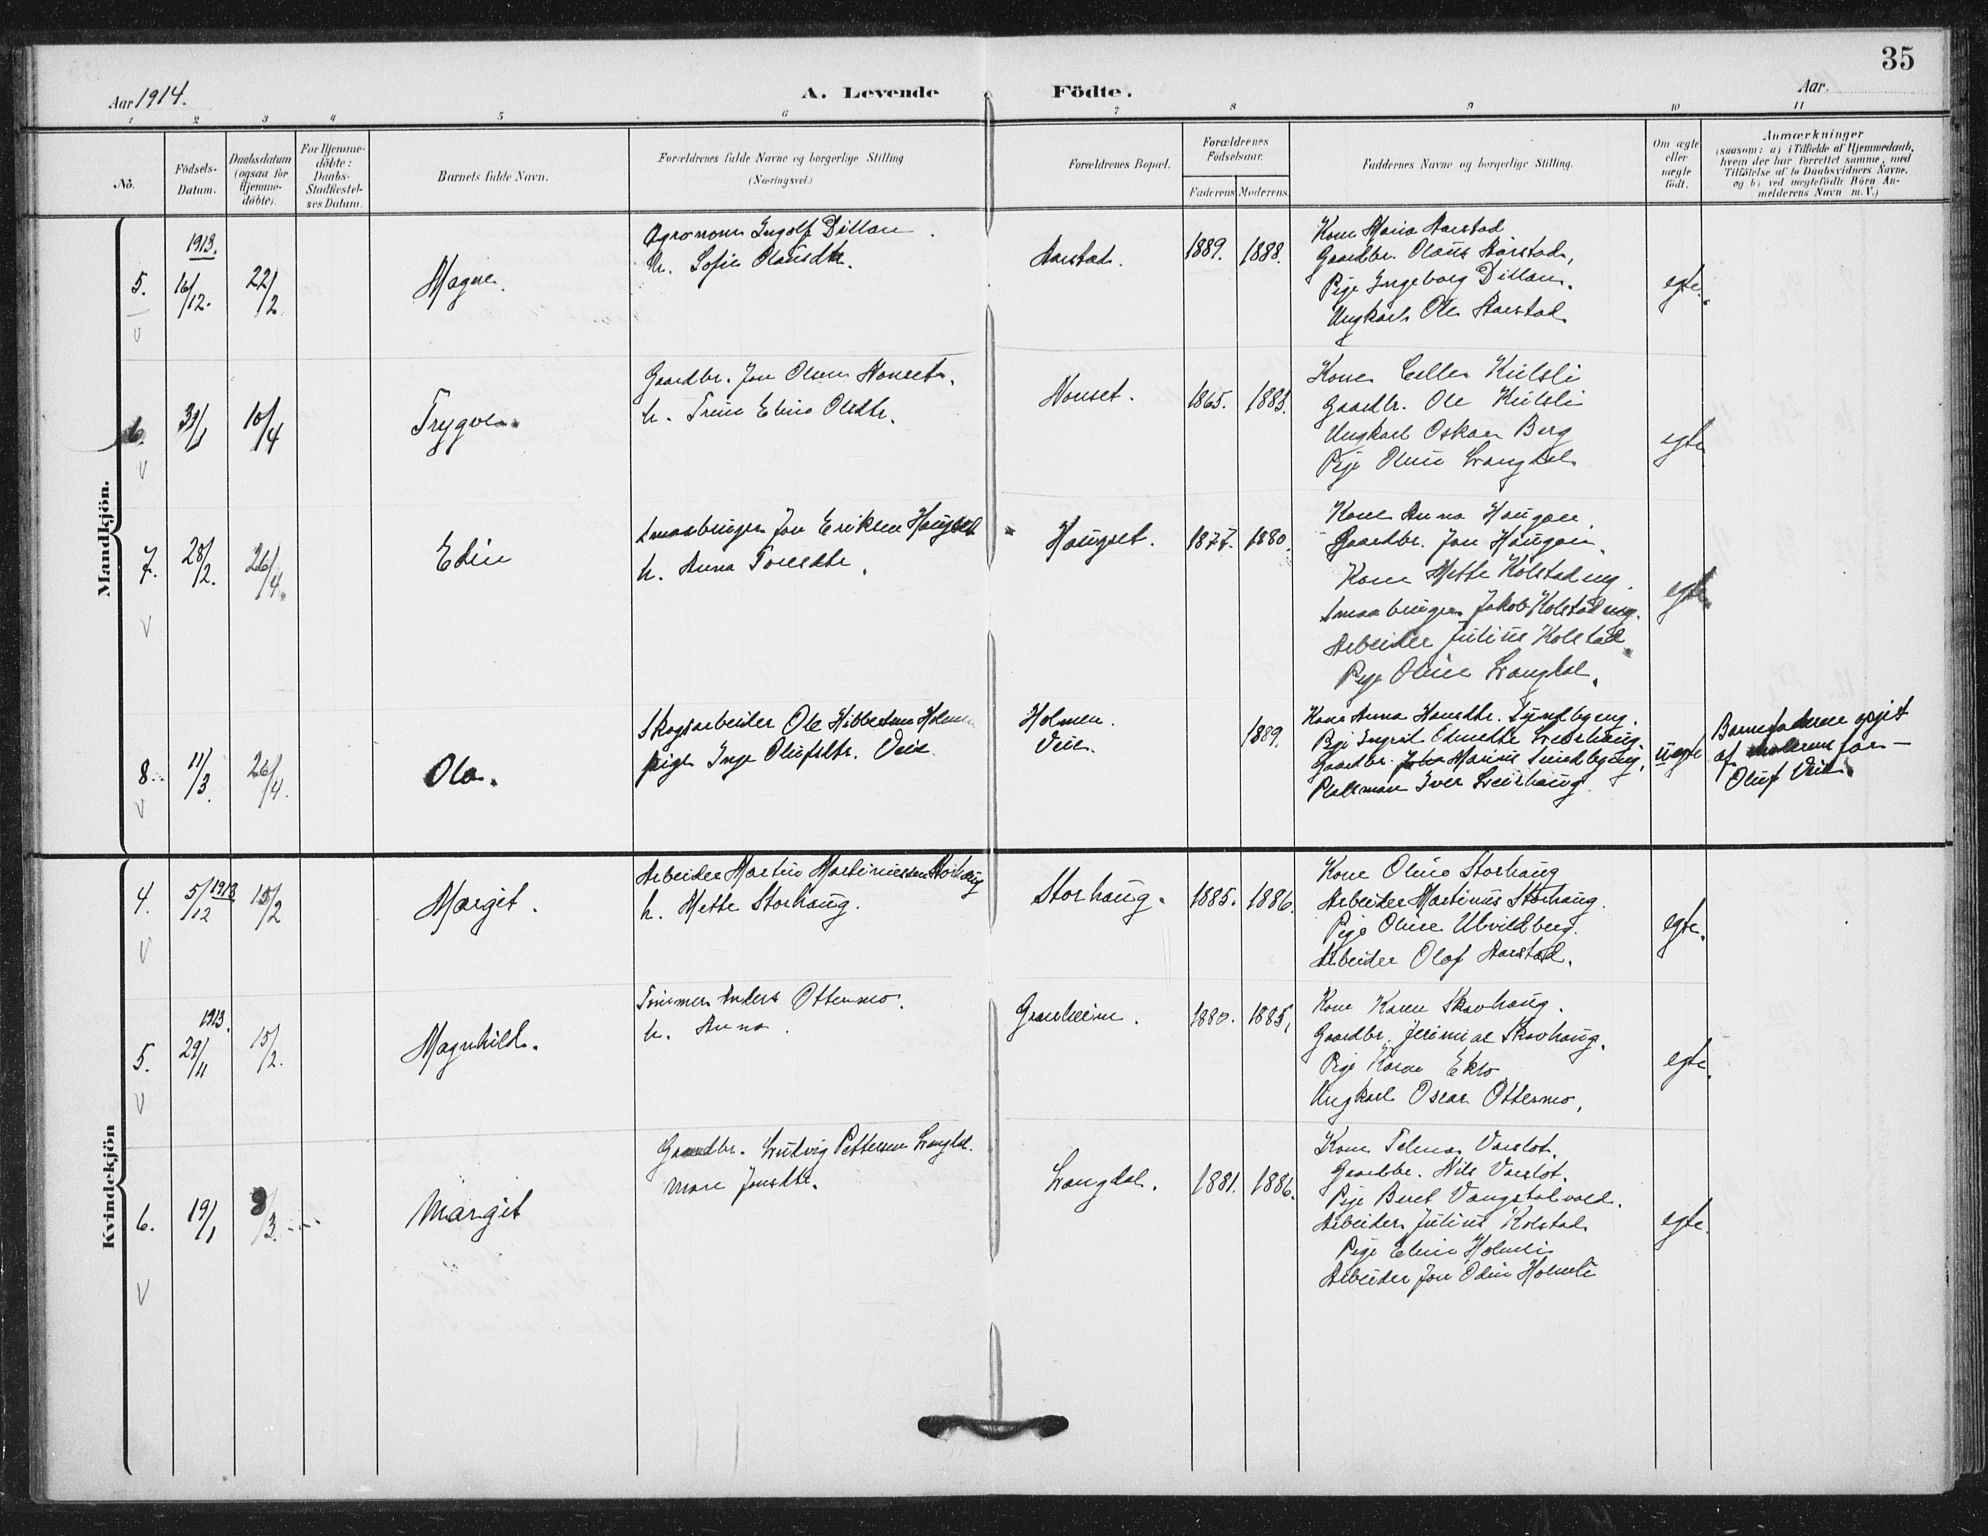 35
Aar 1914.
A. Levende Födte.
Aar.
1 2 3 4 5 6 7 8 9 10 11
No.
Födsels-Datum.
Daabsdatum (ogsaa for Hjemme-döbte).
For Hjemme-döbte: Daabs-Stadfæstel-ses Datum.
Barnets fulde Navn.
Forældrenes fulde Navne og borgerlige Stilling
(Næringsvei.)
Forældrenes Bopæl.
Forældrenes Födselsaar.
Faderens Moderens.
Faddernes Navne og borgerlige Stilling.
Om ægte eller uægte födt.
Anmærkninger
(saasom: a) i Tilfælde af Hjemmedaab,
hvem der har forrettet samme, med
Tilföielse af to Daabsvidners Navne.
og b) ved uægtefödte Börn An-
melderens Navn m. V.)
Mandkjön.
5. 1913. 16/12. 22/2 Magne.
Agronom Ingolf Dillan
h. Sofie Olausdtr.
Aarstad. 1889. 1888.
Kone Maria Aarstad
Gaardbr. Olaus Aarstad,
Pige Ingeborg Dillan.
Ungkarl Ole Aarstad.
egte.
6. 10/4 Trygve.
Gaardbr. Jon Olsen Nonset.
h. Trine Eline Olsdtr.
Nonset. 1865. 1883.
Gaardbr. Ole
Ungkarl Oskar Berg
Pige Oline Langdal
egte
7. 28/2. 26/4. Edin
Smaabruger Jon Eriksen Haugset
h. Anna
Haugset. 1877. 1880.
Kone Anna Haugan
Gaardbr. Jon Haugan.
Kone Mette Kolstad
Smaabruger Jakob Kolstad
Arbeider Julius Kolstad
Pige Oline Langdal.
egte.
8. 11/3. 26/4. Ola.
Skogsarbeider Ole Holmen
pige Inga Olufsdtr. Veie
Holmen.
Veie.
1889.
Kone Anna Hansdtr.
Pige Ingrid
Gaardbr. Marius
Pladsmand Iver
uegte
Barnefaderen opgit
af moderens far —
Oluf Veie.
Kvindekjön
4. 5/12 1913 15/2 Margit.
Arbeider Martin Martiniussen Storhaug
h. Mette Storhaug.
Storhaug. 1885. 1886.
Kone Oline Storhaug
Arbeider Martinus Storhaug.
Pige Oline
Arbeider Olaf Aarstad.
egte.
5. 1913. 29/11 15/2. Magnhild.
Anders Ottermo.
h. Anna.
Granheim. 1880. 1885,
Kone Karen Skavhaug.
Gaardbr. Jerimias Skavhaug.
Pige Eklo
Ungkarl Oscar Ottermo,
egte.
6. 19/1 8/3. Margit
Gaardbr. Ludvig Pettersen Langdal.
Mare Jonsdtr.
Langdal. 1881. 1886.
Kone Telma Varslot.
Gaardbr. Nils Varslot.
Pige Beret
Arbeider Julius Kolstad
Pige Eline Holmli
Arbeider Jon Odin Holmli
egte.